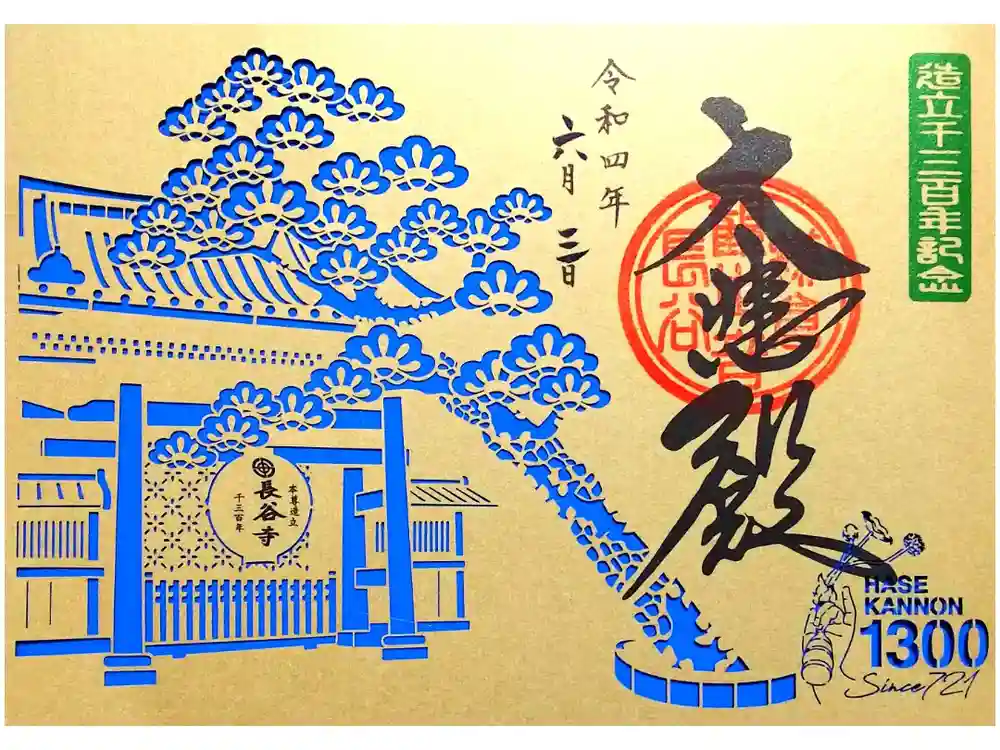 造立千三百年記念
大悲殿
令和四年
六月三日
本尊造立
長谷寺
千三百年
長谷
HASE
KANNON
1300
Since 721